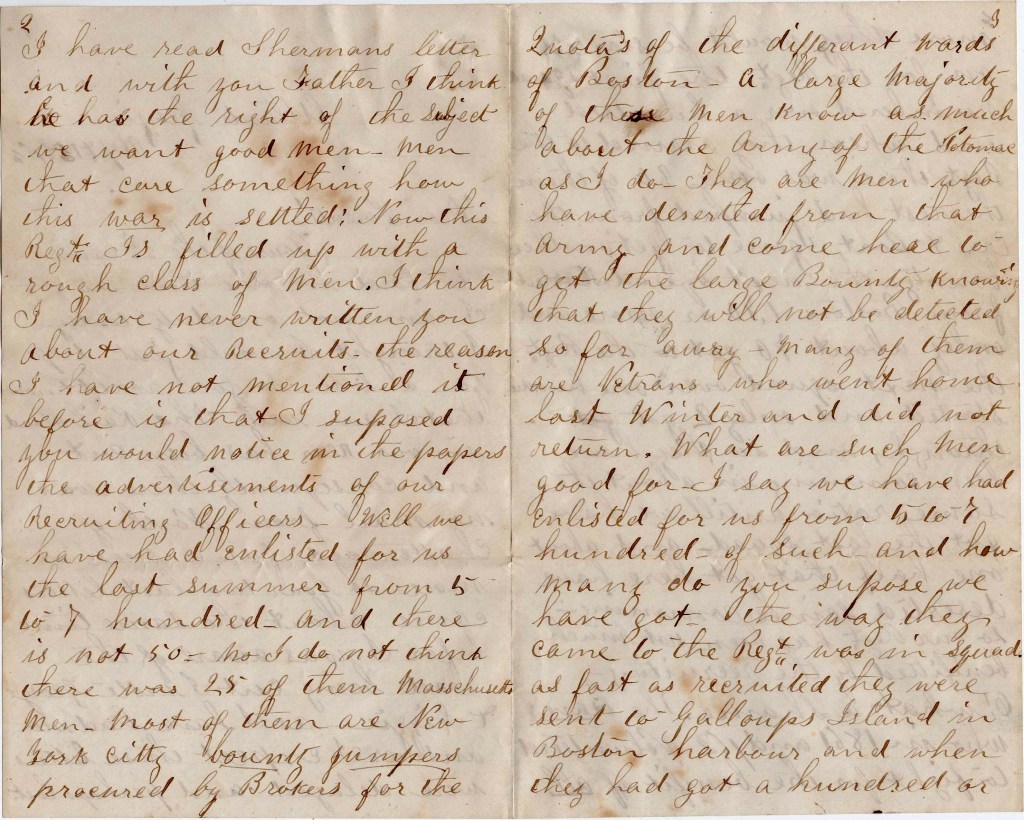 2
I have read Shermans letter
and with you Father I think
he has the right of the subject
we want good men - men
that care something how
this war is settled: Now this
Regt. Is filled up with a
rough class of Men. I think
I have never written you
about our Recruits - the reason
I have not mentioned it
before is that I suposed
you would notice in the papers
the advertisements of our
Recruiting Officers - Well we
have had Enlisted for us
the last summer from 5
to 7 hundred - and there
is not 50 - no I do not think
there was 25 of them Masschusetts
Men - most of them are New
York citty bounty jumpers
procured by Brokers for the
3
Quota's of the differant wards
of Boston - a large majority
of these Men Know as much
about the Army of the Potomac
as I do - They are Men who
have deserted from that
Army and come heae to
get the large Bounty Knowing
that they will not be detected
so far away - Many of them
are Vetrans who went home
last Winter and did not
return. What are such Men
good for - I say we have had
Enlisted for us from 5 to 7
hundred - of such - and how
many do you supose we
have got - the way they
came to the Regt. was in squad.
as fast as recruited they were
sent to Galloups Island in
Boston harbour and when
they had got a hundred or